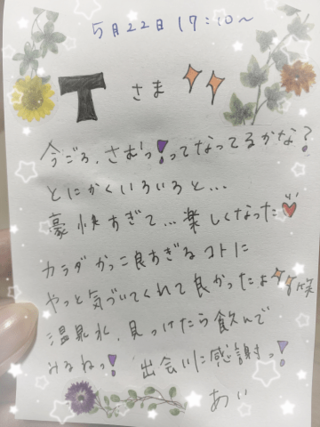 5月22日 19:10〜
T さま
今ごろ、さむっ!ってなってるかな?
とにかくいろいろと…
豪快すぎて…楽しくなった
カラダかっこ良すぎるコトに
やっと気づいてくれて良かったよ 笑
温泉水、見つけたら飲んで
みるねっ! 出会いに感謝っ!
あい